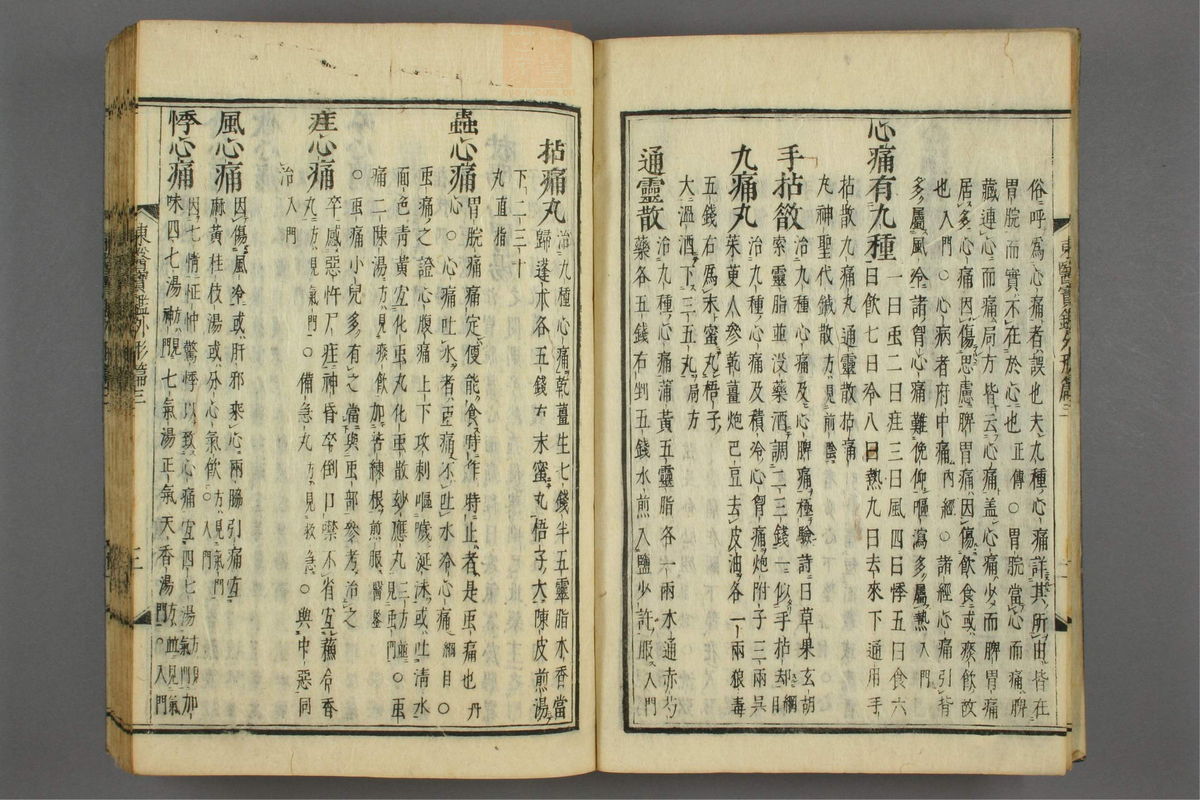 俗呼爲心痛者誤也夫九種心痛詳其所由皆在
胃脘而實不在於心也正傳○胃脘當心而痛脾
藏連心而痛局方皆云心痛盖心痛少而脾胃痛
居多心痛因傷思慮脾胃痛因傷飮食或痰飮故
也入門○心病者府中痛內經○諸經心痛引背
多屬風冷諸胃心痛難俛仰嘔瀉多屬熱入門
心痛有九種
一曰䖝二曰疰三曰風四曰悸五曰食六
曰飮七曰冷八曰熱九曰去來下通用手
拈散九痛丸通靈散拈痛
丸神聖代鍼散方見前陰
手拈散
治九種心痛及心脾痛極驗詩曰草果玄胡
索靈脂並没藥酒調二三錢一似手拈却綱目
九痛丸
治九種心痛及積冷心胃痛炮附子三兩吳
茱萸人參乾薑炮巴豆去皮油各一兩狼毒
五錢右爲末蜜丸梧子
大溫酒下三五丸局方
通靈散
治九種心痛蒲黃五靈脂各一兩木通赤芍
藥各五錢右剉五錢水煎入鹽少許服入門
拈痛丸
治九種心痛乾薑生七錢半五靈脂木香當
歸蓬朮各五錢右末蜜丸梧子大陳皮煎湯
下二三十
丸直指
蟲心痛
胃脘痛定便能食時作時止者是䖝痛也丹
心○心痛吐水者䖝痛不吐水冷心痛綱目○
䖝痛之證心腹痛上下攻刺嘔噦涎沫或吐淸水
面色靑黃宜化䖝丸化䖝散紗應丸三方並見䖝門○䖝
痛二陳湯方見痰飮加苦練根煎服醫鑒
○䖝痛小兒多有之當與䖝部參考治之
疰心痛
卒感惡忤尸疰神昏卒倒口噤不省宜蘓合香
丸方見氣門○備急丸方見救急○與中惡同
治入門
風心痛
因傷風冷或肝邪乘心兩脇引痛宜
麻黃桂枝湯或分心氣飮方見氣門○入門
悸心痛
因七情怔忡驚悸以致心痛宜四七湯方見氣門加
味四七湯方見神門七氣湯正氣天香湯方並見氣門○入門
東醫寶鑑外形篇三
東醫寶鑑外形篇三